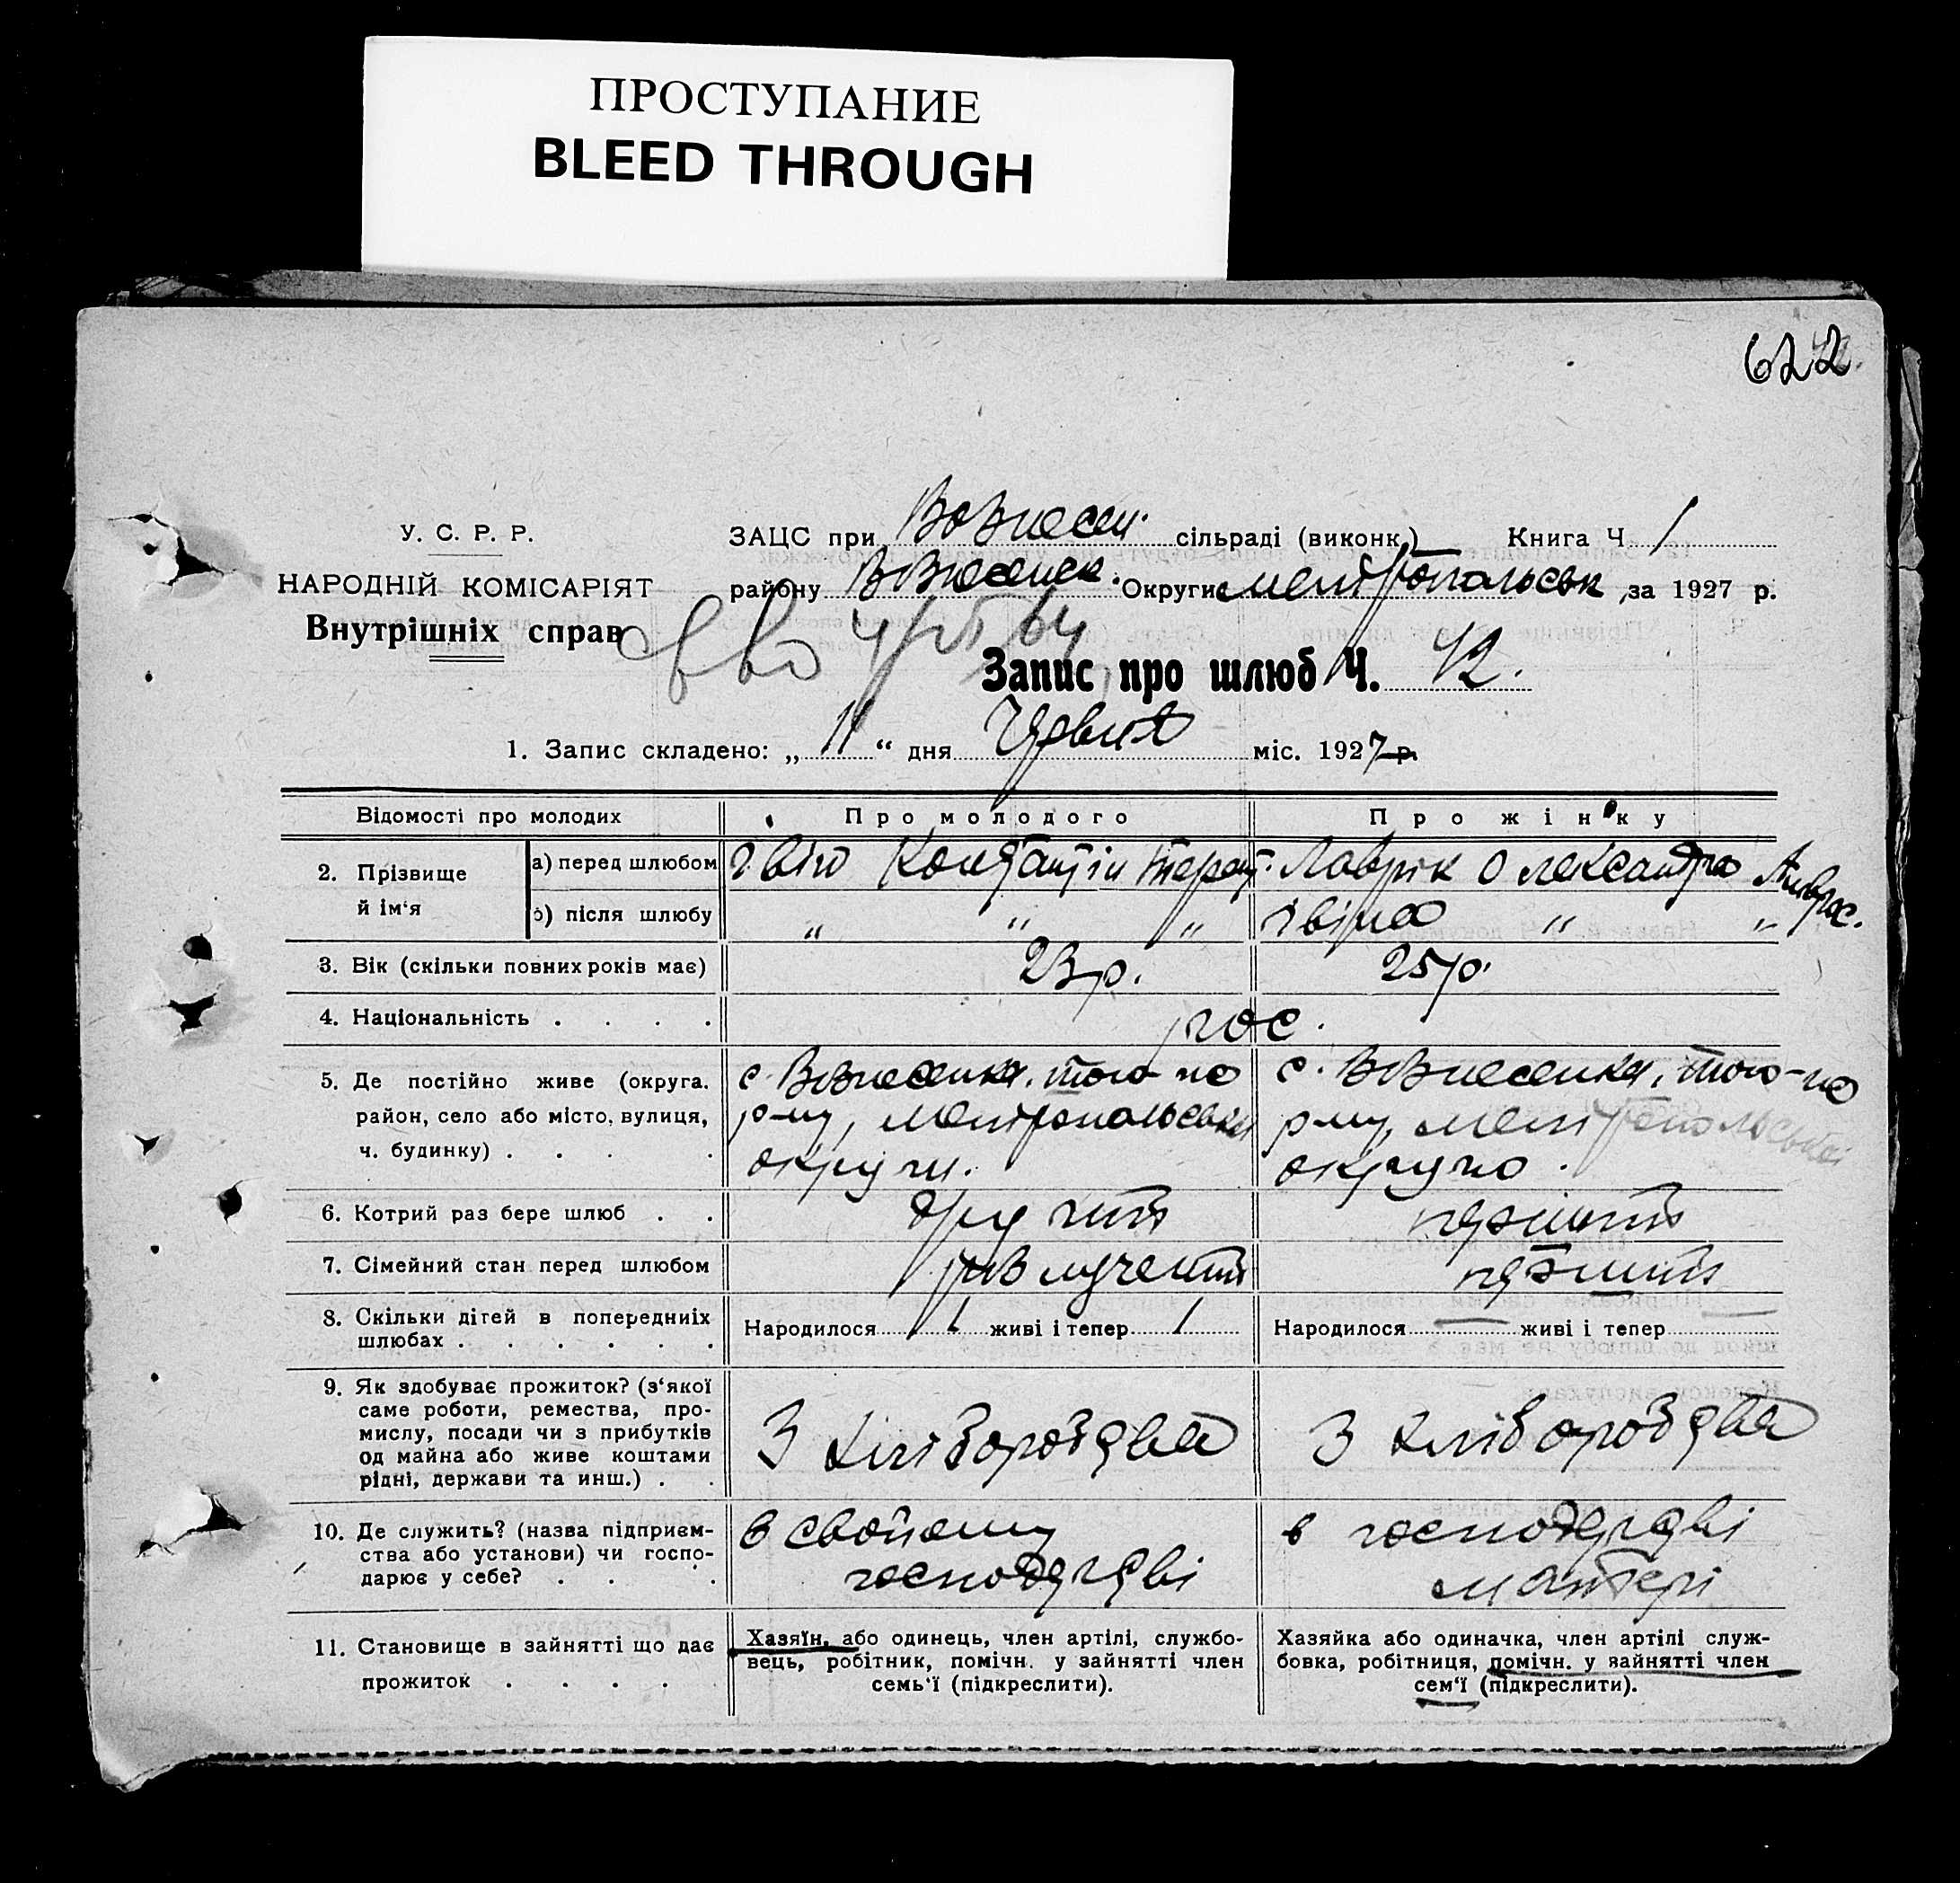 ПРОСТУПАНИЕ
BLEED THROUGH
622
У. С. Р. Р.
НАРОДНІЙ КОМІСАРІЯТ
Внутрішніх справ
ЗАЦС при Вознесен. сільраді (виконк.) Книга Ч. 1
району Вознесенск. Округи Мелітопольськ за 1927 р.
Запис про шлюб Ч. 42.
1. Запис складено: „ 11 “ дня Червня міс. 1927 р.
Відомості про молодих Про молодого Про жінку
2. Прізвище й ім‘я
а) перед шлюбом Івін Констянтін Терент. Лаврік Олександра Амврос.
б) після шлюбу „ „ „ Івіна „ „
3. Вік (скільки повних років має) 23 р. 25 р.
4. Національність . . . . рос.
5. Де постійно живе (округа.
район, село або місто, вулиця,
ч. будинку) . . . .
с. Вознесенка, того-но
р-ну, Мелітопольської
округи.
с. Вознесенка, того-но
р-ну, Мелітопольської
округи.
6. Котрий раз бере шлюб . . другий перший
7. Сімейний стан перед шлюбом
8. Скільки дітей в попередніх
шлюбах . . . . . .
Народилося 1 живі і тепер 1
Народилося — живі і тепер —
9. Як здобуває прожиток? (з‘якої
саме роботи, ремества, про-
мислу, посади чи з прибутків
од майна або живе коштами
рідні, держави та инш.) . .
З хліборобства
З хліборобства
10. Де служить? (назва підприєм-
ства або установи) чи госпо-
дарює у себе? . . .
в свойому
господарстві
в господарстві
матері
11. Становище в зайнятті що дає
прожиток . . . . .
Хазяїн, або одинець, член артілі, службо-
вець, робітник, помічн. у зайнятті член
семь‘ї (підкреслити).
Хазяйка або одиначка, член артілі служ-
бовка, робітниця, помічн. у зайнятті член
сем‘ї (підкреслити).